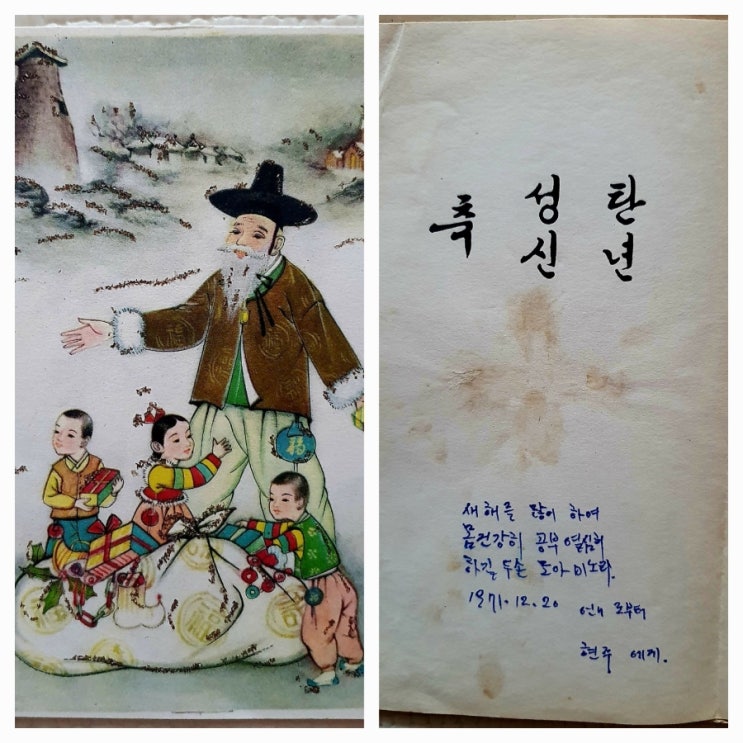 福
축 성탄
신년
새해를 맞이 하여
몸건강히 공부 열심히
하길 두손 모아 비노라.
1971.12.20 언니 로부터
현주 에게.